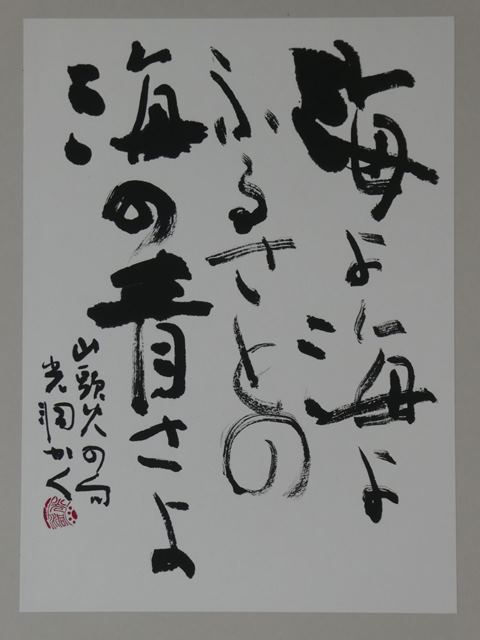 海よ海よ
ふるさとの
海の青さよ
山頭火の句
かく